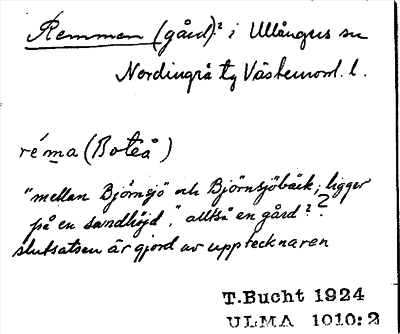 Remman (gård)? i Ullångers sn
Nordingrå tg Västernorrl. l.
réma (Boteå)
"mellan Björnsjö och Björnsjöbäck; ligger
på en sandhöjd," alltså en gård? ?
slutsatsen är gjord av upptecknaren
T.Bucht 1924
ULMA 1010:2